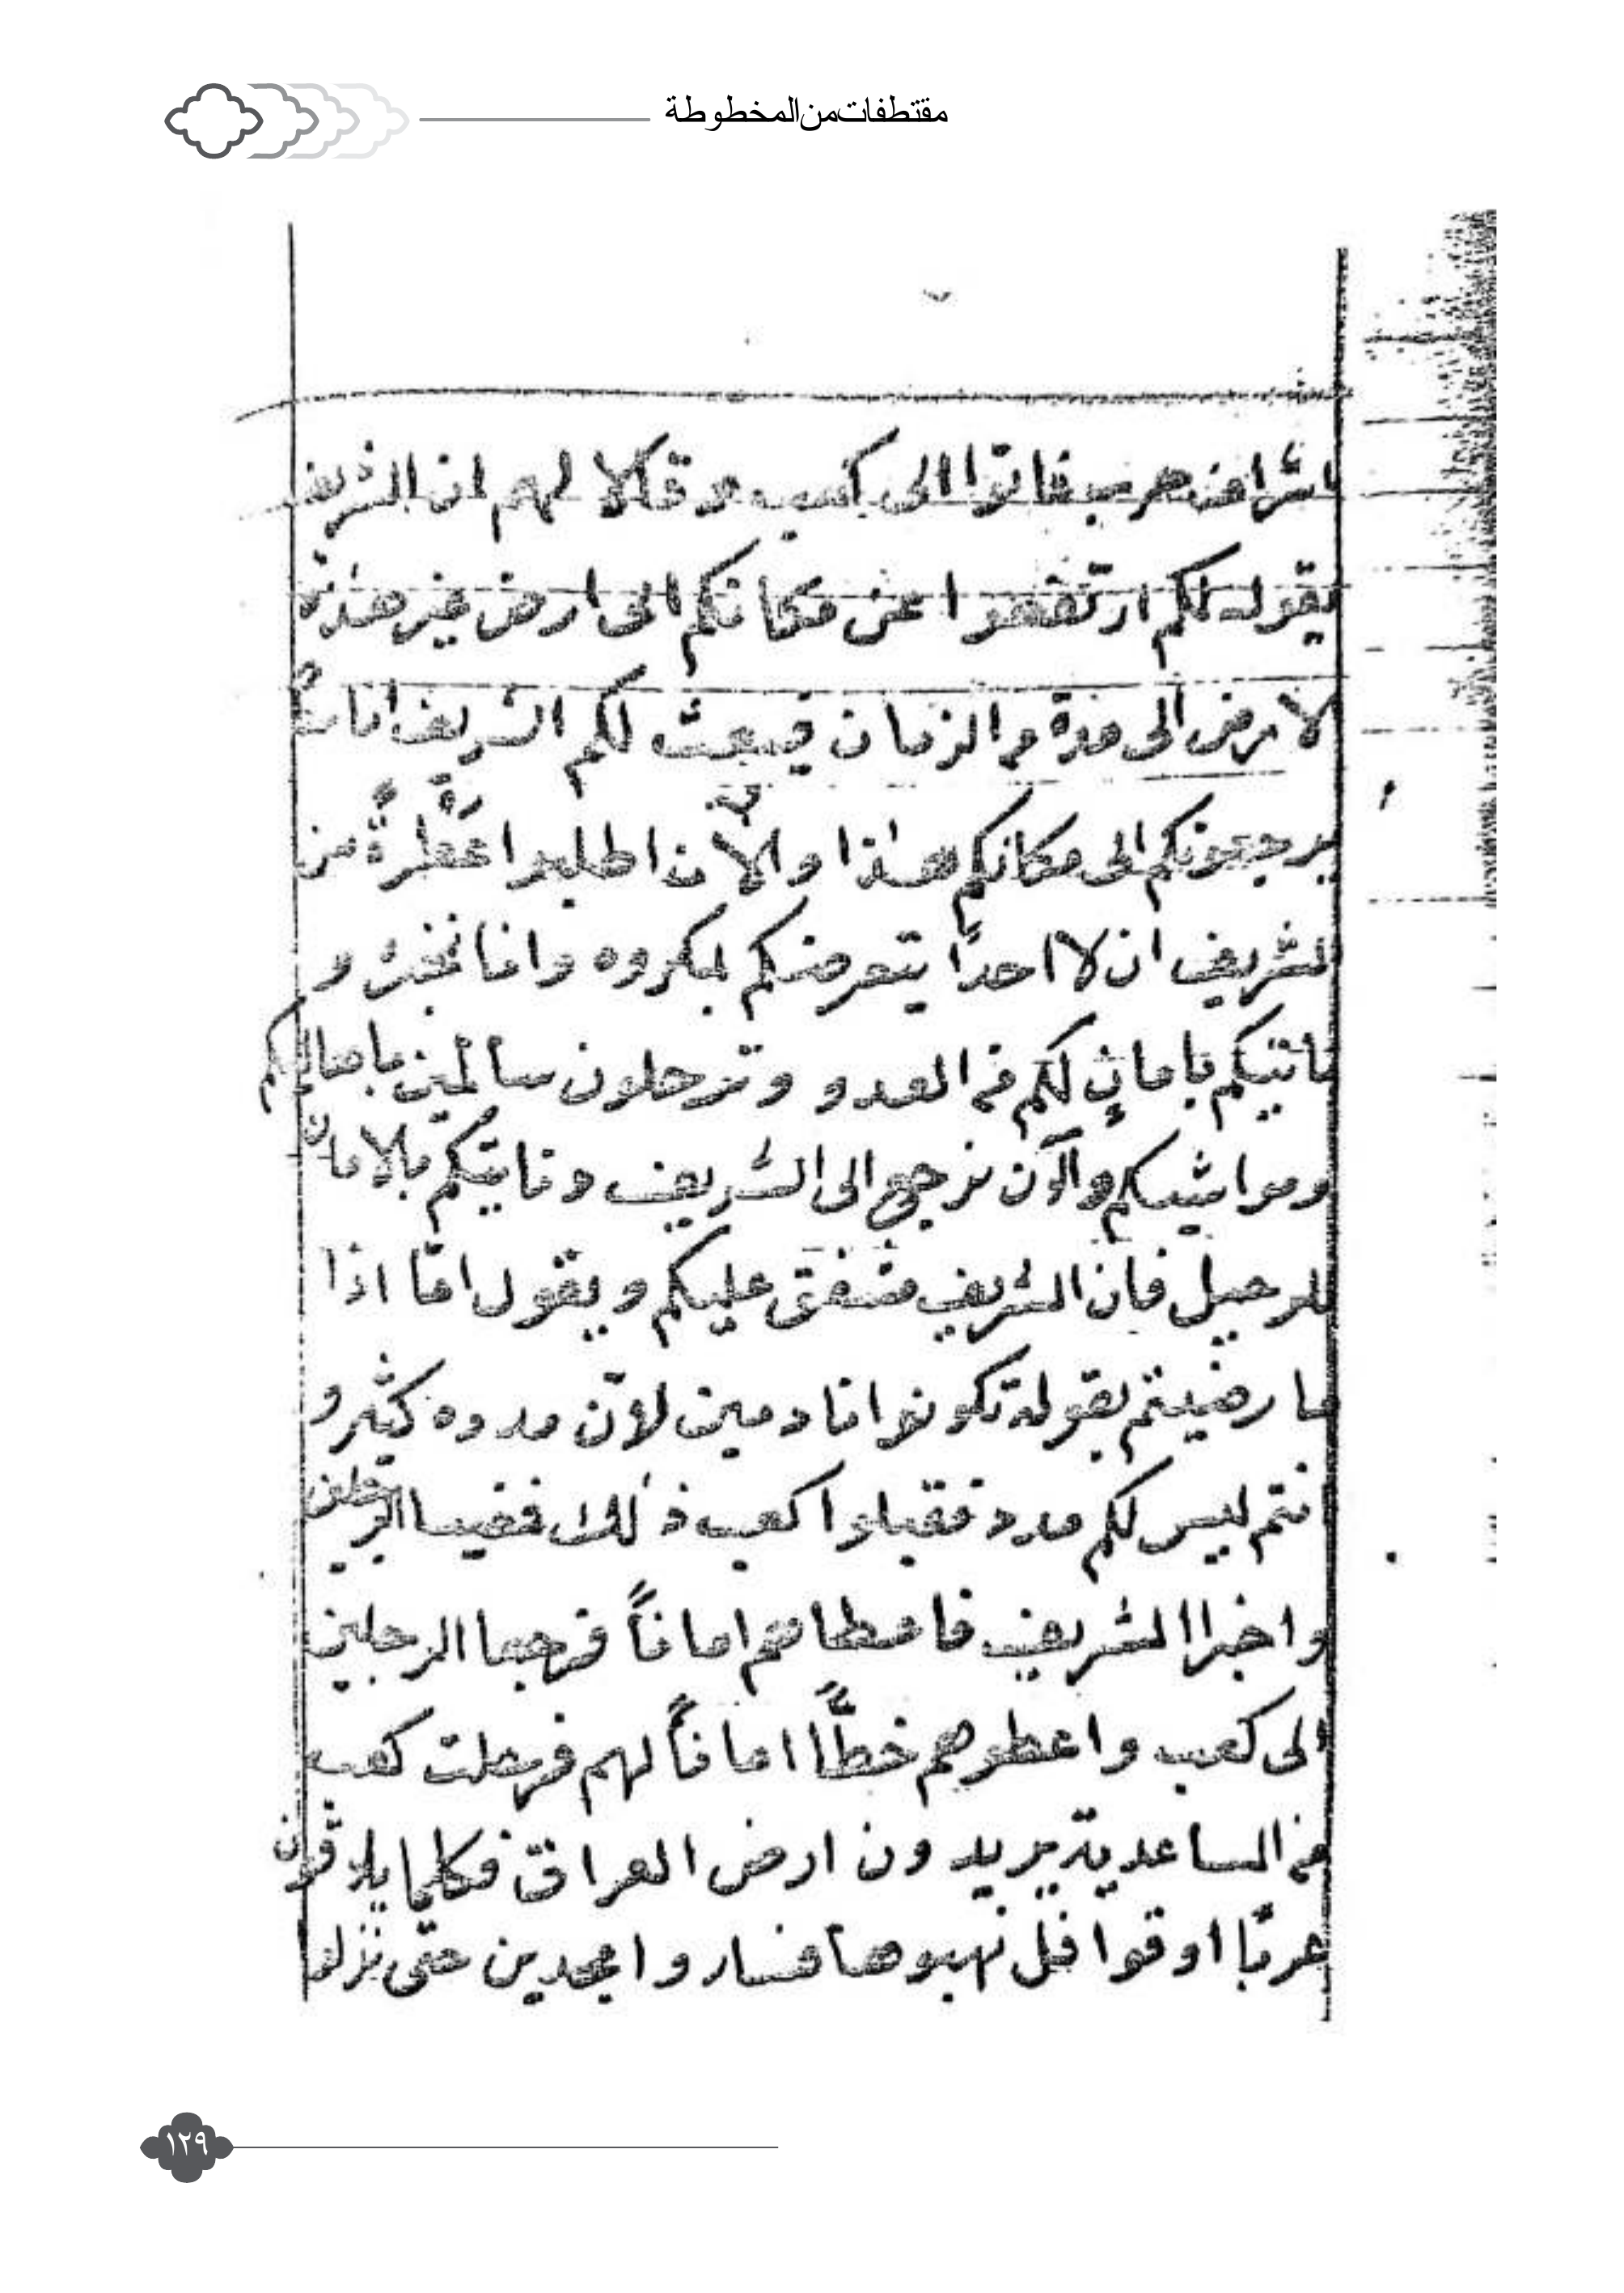 مقتطفات من المخطوطة
اشراف حرب فاتوا الى كعب وقالا لهم ان الشريف
يقول لكم ارتفعوا عن مكانكم الى ارض غير هذه
لارض الى مدة من الزمان فيبعث لكم الشريف اناسًا
يرجعونكم الى مكانكم هذا والآن اطلبوا من
الشريف ان لا احدًا يتعرضكم بمكروه وانا نخبر و
ناتيكم بامانٍ لكم من العدو وترحلون سالمين باموالكم
ومواشيكم والآن نرجع الى الشريف وناتيكم بالامان
للرحيل فان الشريف مشفق عليكم ويقول امّا اذا
ما رضيتم بقوله تكونوا نادمين لانّ مدده كثير و
انتم ليس لكم مدد فقبلوا كعب ذلك فمضيا الرجلين
واخبرا الشريف فاعطاهم امانًا فرجعا الرجلين
الى كعب واعطوهم خطًّا امانًا لهم فرحلت كعب
من المساعدية يريدون ارض العراق فكلما يلاقون
عربًا او قوافل نهبوها فساروا مجدين حتى نزلوا
١٢٩